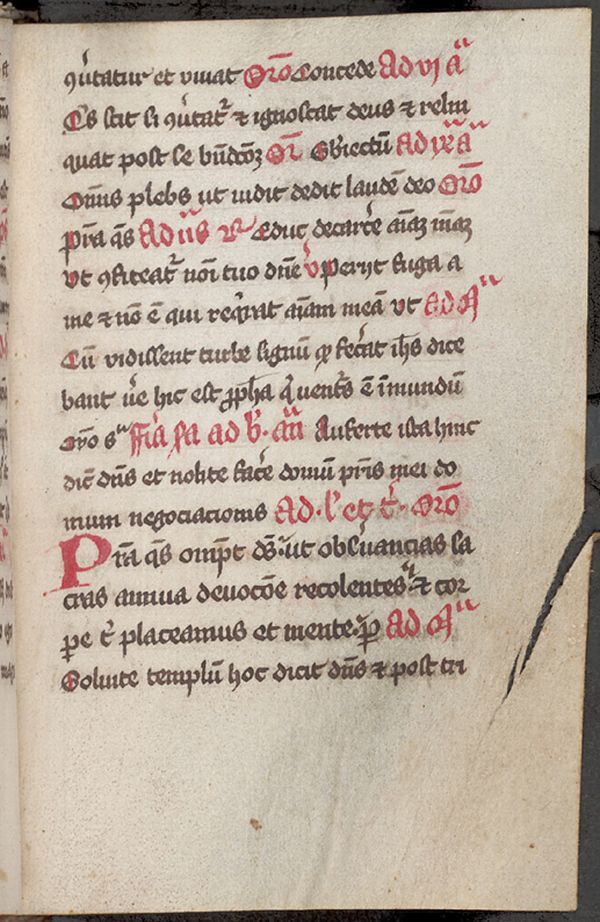 ꝯũtatur et viuat Oro Concede Ad vj a̅
Q̃s scit si ꝯũtat̃ ⁊ ignoscat deus ⁊ relin
quat post se bñdc̃oꝫ Or̃ Obiectũ Ad ixa̅ a̅
Om̃is plebs ut uidit dedit laudẽ deo Oro
Pr̃a q̃s Ad uũs Educ de carc̃e aĩaꝫ mẽaꝫ
Vt ꝯfiteat̃ noĩ tuo dñe v̓ Perijt fuga a
me ⁊ nõ ẽ qui req̃rat aĩam meã vt Ad M̅
Cũ vidissent turbe signũ qđ fec̃at ih̃s dice
bant ũe hic est ꝓph̃a q̃ uentũs ẽ ĩ mundũ
Or̃o s̃ ffr̃ia ad b̓ añ Auferte ista hinc
dic̃ dñs et nolite fac̃e domũ pr̃is mei do
mum negociacionis Ad l̓ et t̃ Oro
Pr̃a q̃s omp̃t ds̃ ut obs̃uancias sa
cras annua deuoc̃oe recolentes ⁊ cor
ꝑe t̃ placeamus et mente ꝑ Ad M̅
Soluite templũ hoc dicit dñs ⁊ post tri